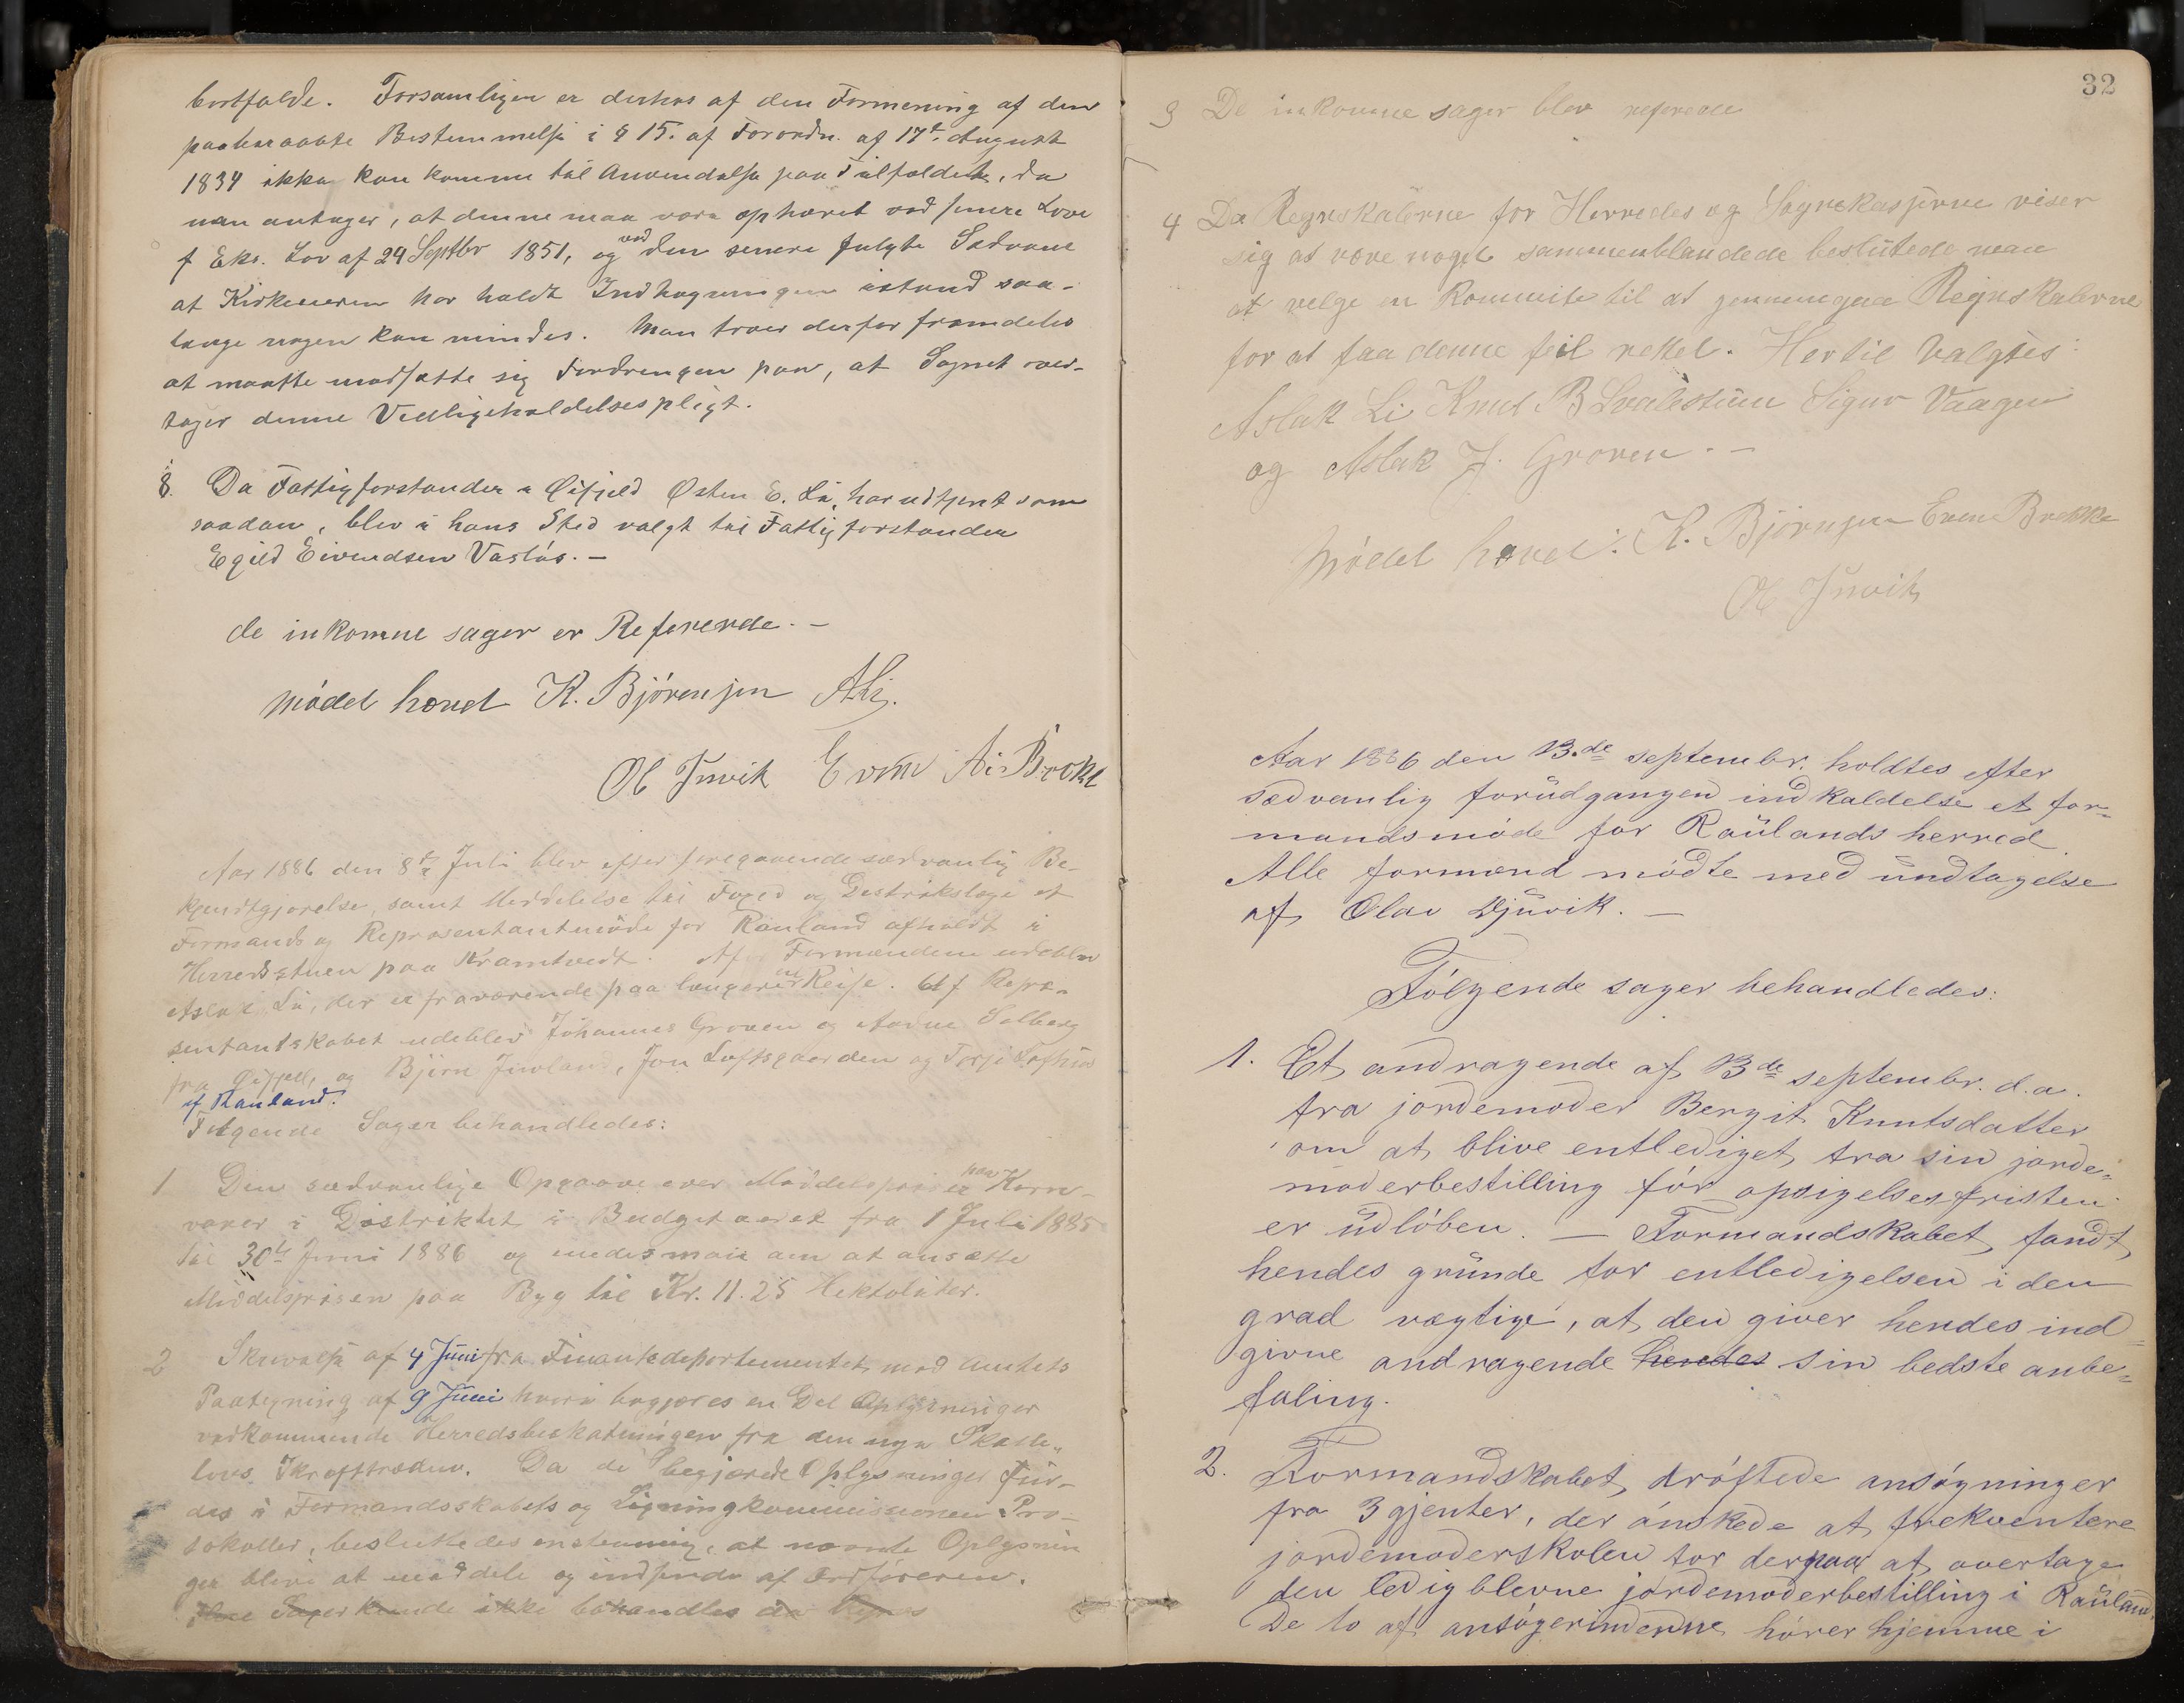 bortfalde. Forsamligen er derhos af den Formening af den
paaberaabte Bestemmelse i § 15. af Forordn. af 17de August
1834 ikke kan komme til Anvendelse paa Tilfældet, da
man antager, at denne maa være ophævet ved senere Love
f Eks. Lov af 24 Septbr 1851, og ved den senere fulgte Sædvane
at Kirkeeieren har holdt Indhegningen istand saa-
længe nogen kan mindes. Man troer derfor fremdeles
at maatte modsætte sig Fordringen paa, at Sognet ved-
tager denne Vedligeholdelsespligt.
8. Da Fattigforstander i Øifjeld Østen E. Li, har udtjent som
saadan, blev i hans Sted valgt til Fattigforstander
Egild Eivendsen Vaslós. -
de inkomne sager er Refererede. -
Mødet hævet K. Bjørensen ALi.
Ol Juvik Even Ai Brokk
Aar 1886 den 8de Juli blev efter foregaaende sædvanlig Be-
kjendtgjørelse, samt Meddelelse til Foged og Destrikslæge et
Formands og Repræsentantmøde for Rauland afholdt i
Herredsstuen paa Kramtvedt. Af Formændene udeblev
Aslak Li, der er fraværende paa længere Reise. Af Repræ-
sentantskabet udeblev Johannes Groven og Aadne Solberg
fra Øifjell, og Björn Juvland, Jon Loftsgaarden og Torje Lofthus
af Rauland.
Følgende Sager behandledes:
1 Den sædvanlige Opgaave over Middelpriser paa Korn-
varer i Distriktet i Budgetaaret fra 1 Juli 1885
til 30te Juni 1886 og enedes man om at ansætte
Middelprisen paa Byg til Kr. 11.25 Hektoliter.
2 Skrivelse af 4 Juni fra Finantsdepartementet med Amtets
Paategning af 9 Juni hvori begjæres en Del Oplysninger
vedkommende Herredsbeskatningen fra den nye Skatte-
lovs Ikrafttræden. Da de begjærede Oplysninger fin-
des i Formandsskabets og Ligningkommissionen Pro-
tokoller, besluttedes enstemmig, at nævnte Oplysnin
ger blive at meddele og indsende af Ordføreren.
Flere Sager kunde ikke behandles da
32
3 De inkomne sager blev referede
4 Da Regnskaberne for Herredes og Sognekasserne viser
sig at være noget sammenblandede beslutede man
at velge en Kommite til at gennemgaa Regnskaberne
for at faa denne feil rettet. Hertil Valgtes:
Aslak Li Knut B Svalestuen Sigur Vaagen
og Aslak J. Groven. -
Mødet hævet: K. Bjørnsen Even Brekke
Ol Juvik
Aar 1886 den 13.de septembr. holdtes efter
sædvanlig forudgangen indkaldelse et for-
mandsmøde for Raulands herred
Alle formænd mødte med undtagelse
af Olav Djuvik. -
Følgende sager behandledes:
1. Et andragende af 13de septembr. d.a.
fra jordemoder Bergit Knutsdatter
om at blive entlediget fra sin jorde-
moderbestilling før opsigelsesfristen
er udløben. - Formandskabet fandt
hendes grunde for entledigelsen i den
grad vægtige, at den giver hendes ind-
givne andragende hendes sin bedste anbe-
faling.
2. Formandskabet drøftede ansøgninger
fra 3 gjenter, der ønskede at frekventere
jordemoderskolen for derpaa at overtage
den ledigblevne jordemoderbestilling i Rauland.
De to af ansøgerinderne hører hjemme i